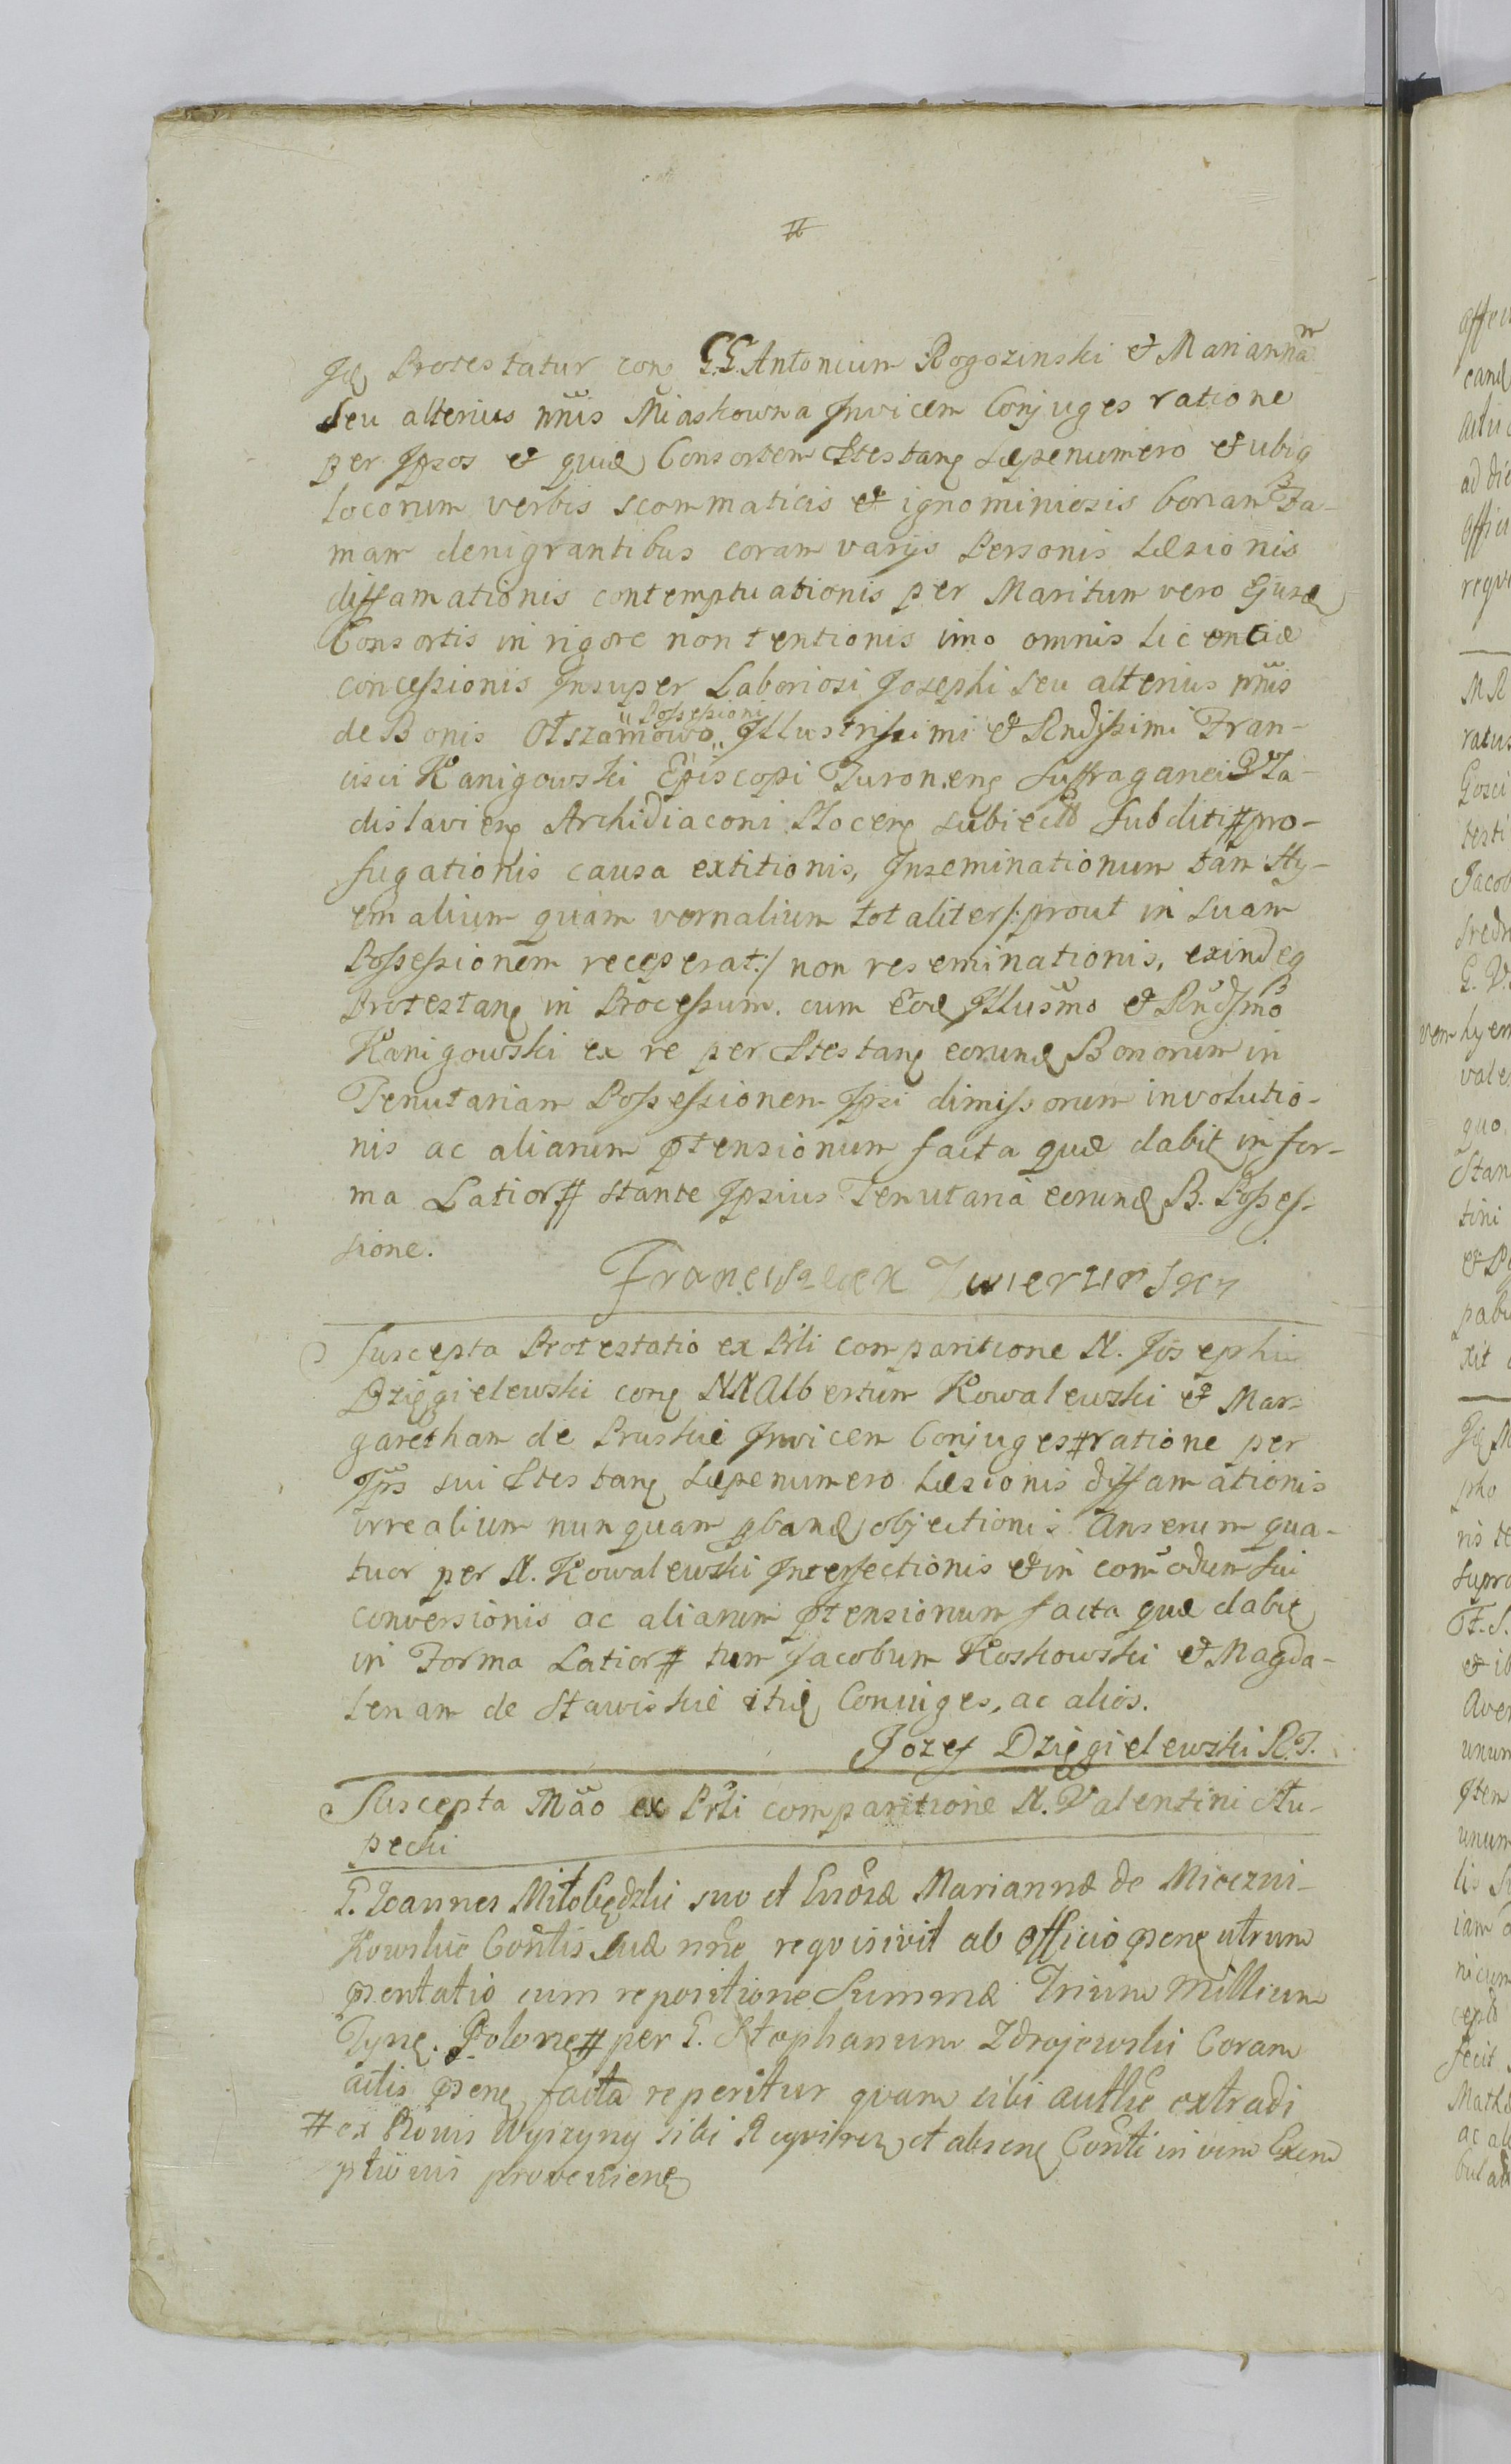 #
Idem Protestatur con̄ G.G. Antonium Rogozinski et Mariannam
seu alterius nn̄is Miaskowna Invicem Conjuges ratione
per Ipsos et quid Consortem Ptestan Sæpenumero et ubiq
locorum verbis scommaticis et ignominiosis bonam Fa-
mam denigrantibus coram varijs Personis Læsionis
diffamationis contemptuationis per Maritum vero Ejusd
Consortis in rigore non tentionis imo omnis licentiæ
concessionis Insuper Laboriosi Josephi seu alterius nn̄is
de Bonis Olszamowo „Possessioni„ Illustrissimi et Rndissimi Fran-
cisci Kanigowski Episcopi Turonen Suffraganei Vla-
dislavien Archidiaconi Plocen subiecto Subditi # pro-
fugationis causa extitionis, Inseminationum tam Hy-
emalium quam vernalium totaliter /: prout in suam
Possessionem receperat :/ non reseminationis, exindeq
Protestan in Processum cum Eod Illusmo et Rndsmo
Kanigowski ex re per Ptestan eorund Bonorum in
Tenutariam Possessionem Ipsi dimissorum involutio-
nis ac aliarum ptensionum facta quæ dabit in for-
ma Latior # stante Ipsius Tenutaria eorund B. Posses-
sione.
Franciszek Zwierzinski
Suscepta Protestatio ex Prli comparitione N. Josephi
Dzięgielewski con̄ NN Albertum Kowalewski et Mar-
garetham de Pruskie Invicem Conjuges # ratione per
Ips sui Ptestan Sæpenumero Læsionis diffamationis
irrealium nunquam pband objectionis Anserum qua-
tuor per N. Kowalewski Interfectionis et in comodum sui
conversionis ac aliarum ptensionum facta quæ dabit
in Forma Latior # tum Jacobum Koskowski et Magda-
lenam de Stawiskie itid Coniuges, ac alios.
Jozef Dzięgielewski R.T.
Suscepta Māo ex Prli comparitione N. Valentini Stu-
pecki
G. Joannes Miłobędzki suo et Gnosæ Mariannæ de Mieczni-
kowskie Contis suæ nn̄e requisivit ab Officio psen utrum
psentatio cum repositione Summæ Trium Millium
Tyn. Polone # per G. Stephanum Zdrojewski Coram
actis psen facta reperitur quam sibi authe extradi
# ex Bonis Wyszyny sibi Requiren et absen Conti in vim Exem
ptionis provenien